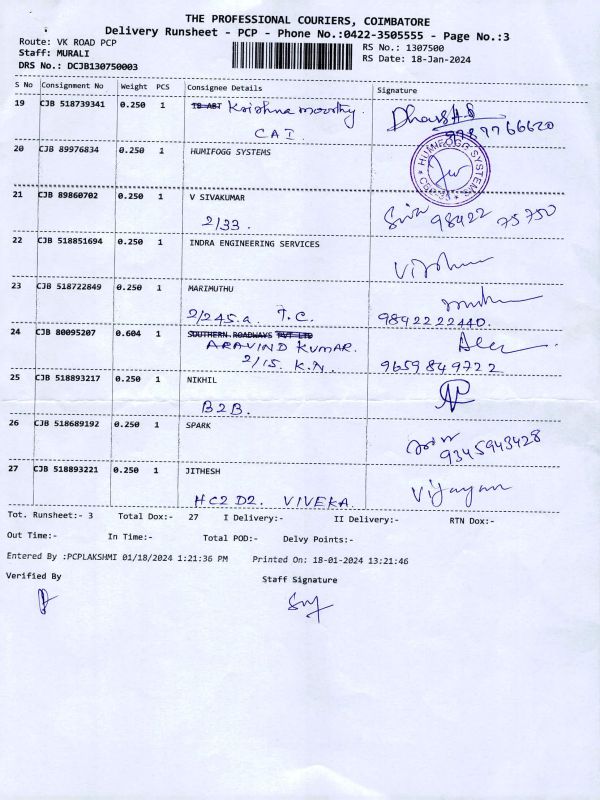 THE PROFESSIONAL COURIERS, COIMBATORE
Delivery Runsheet - PCP - Phone No.:0422-3505555 - Page No.:3
Route: VK ROAD PCP RS No.: 1307500
Staff: MURALI RS Date: 18-Jan-2024
DRS No.: DCJB130750003
S No Consignment No Weight PCS Consignee Details Signature
19 CJB 518739341 0.250 1 TB ABT Krishna moorthy
CAI
20 CJB 89976834 0.250 1 HUMIFOGG SYSTEMS
HUMIFOGG SYSTEMS
21 CJB 89860702 0.250 1 V SIVAKUMAR
2/33. Siva 98422 75750
22 CJB 518851694 0.250 1 INDRA ENGINEERING SERVICES
23 CJB 518722849 0.250 1 MARIMUTHU
2/245.a T.C. 9892222440.
24 CJB 80095207 0.604 1 SOUTHERN ROADWAYS PVT LTD
ARAVIND KUMAR.
2/15. K.N. 9659849722
25 CJB 518893217 0.250 1 NIKHIL
B2B.
26 CJB 518689192 0.250 1 SPARK
9345943428
27 CJB 518893221 0.250 1 JITHESH Vijayan
HC2 D2. VIVEKA.
Tot. Runsheet:- 3 Total Dox:- 27 I Delivery:- II Delivery:- RTN Dox:-
Out Time:- In Time:- Total POD:- Delvy Points:-
Entered By :PCPLAKSHMI 01/18/2024 1:21:36 PM Printed On: 18-01-2024 13:21:46
Verified By Staff Signature